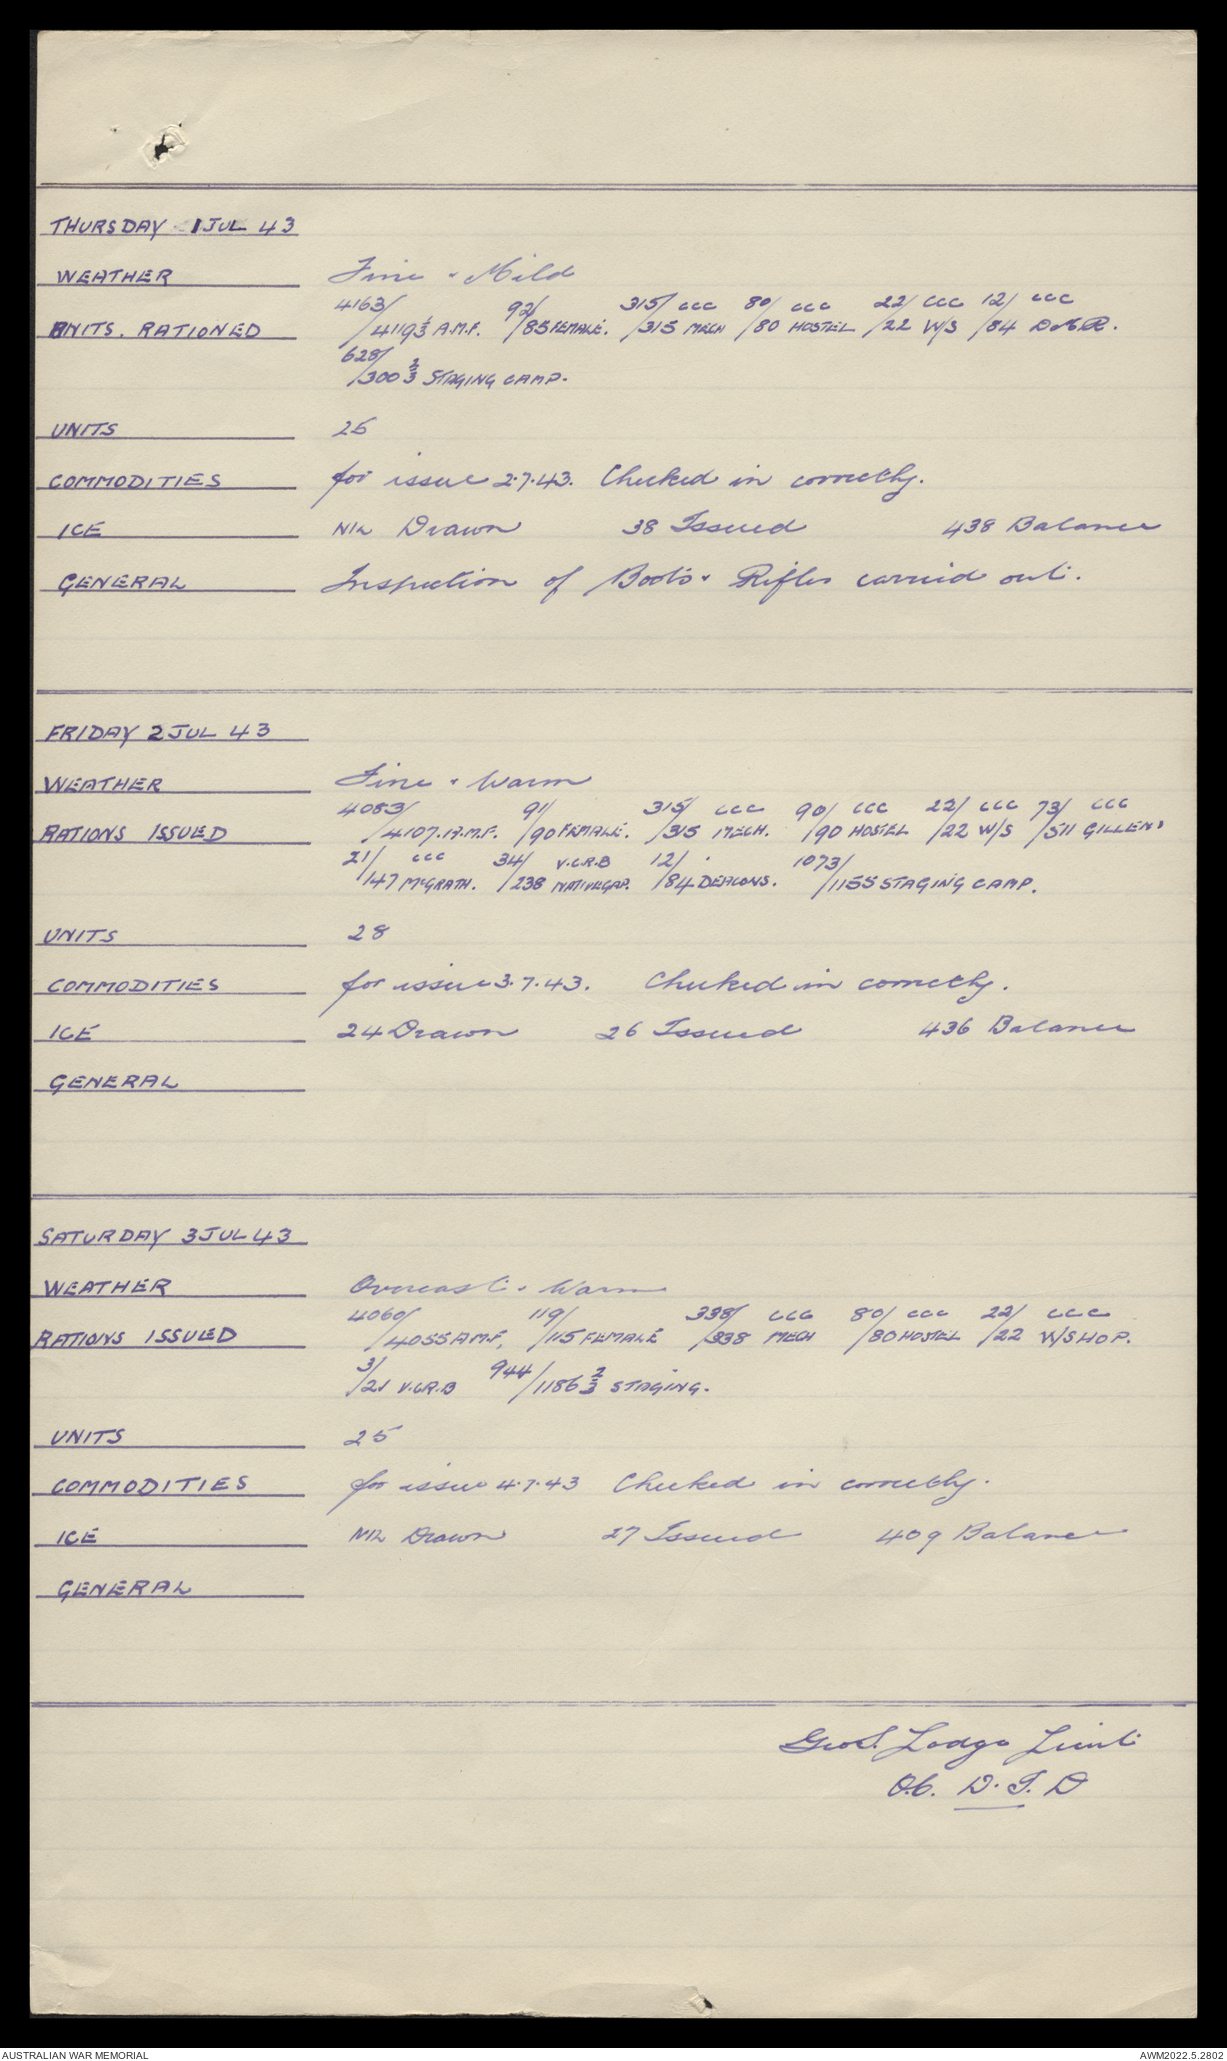 THURSDAY 1 JUL 43
WEATHER Fine & Mild
4163/ 92/ 315/ CCC 80/ CCC 22/ CCC 12/ CCC
UNITS. RATIONED /4119⅓ A.M.F. /85 FEMALE. /315 MECH /80 HOSTEL /22 W/S /84 D&R.
628/
/300⅔ STAGING CAMP.
UNITS 25
COMMODITIES for issue 2.7.43. Checked in correctly.
ICE NIL Drawn 38 Issued 438 Balance
GENERAL Inspection of Boots & Rifles carried out.
FRIDAY 2 JUL 43
WEATHER Fine & Warm
4083/ 91/ 315/ CCC 90/ CCC 22/ CCC 73/ CCC
RATIONS ISSUED /4107. A.M.F. /90 FEMALE. /315 MECH. /90 HOSTEL /22 W/S /511 GILLENS
21/ CCC 34/ V.C.R.B 12/ 1073/
/147 McGRATH. /238 NATIVEGAP. /84 DEACONS. /1155 STAGING CAMP.
UNITS 28
COMMODITIES for issue 3.7.43. Checked in correctly.
ICE 24 Drawn 26 Issued 436 Balance
GENERAL
SATURDAY 3 JUL 43
WEATHER Overcast & Warm
4060/ 119/ 338/ CCC 80/ CCC 22/ CCC
RATIONS ISSUED /4055 A.M.F, /115 FEMALE /338 MECH /80 HOSTEL /22 W/SHOP.
3/ 944/
/21 V.C.R.B /1186⅔ STAGING.
UNITS 25
COMMODITIES for issue 4.7.43 Checked in correctly.
ICE NIL Drawn 27 Issued 409 Balance
GENERAL
Geo S. Lodge Lieut
O.C. D.I.D
AUSTRALIAN WAR MEMORIAL AWM2022.5.2802